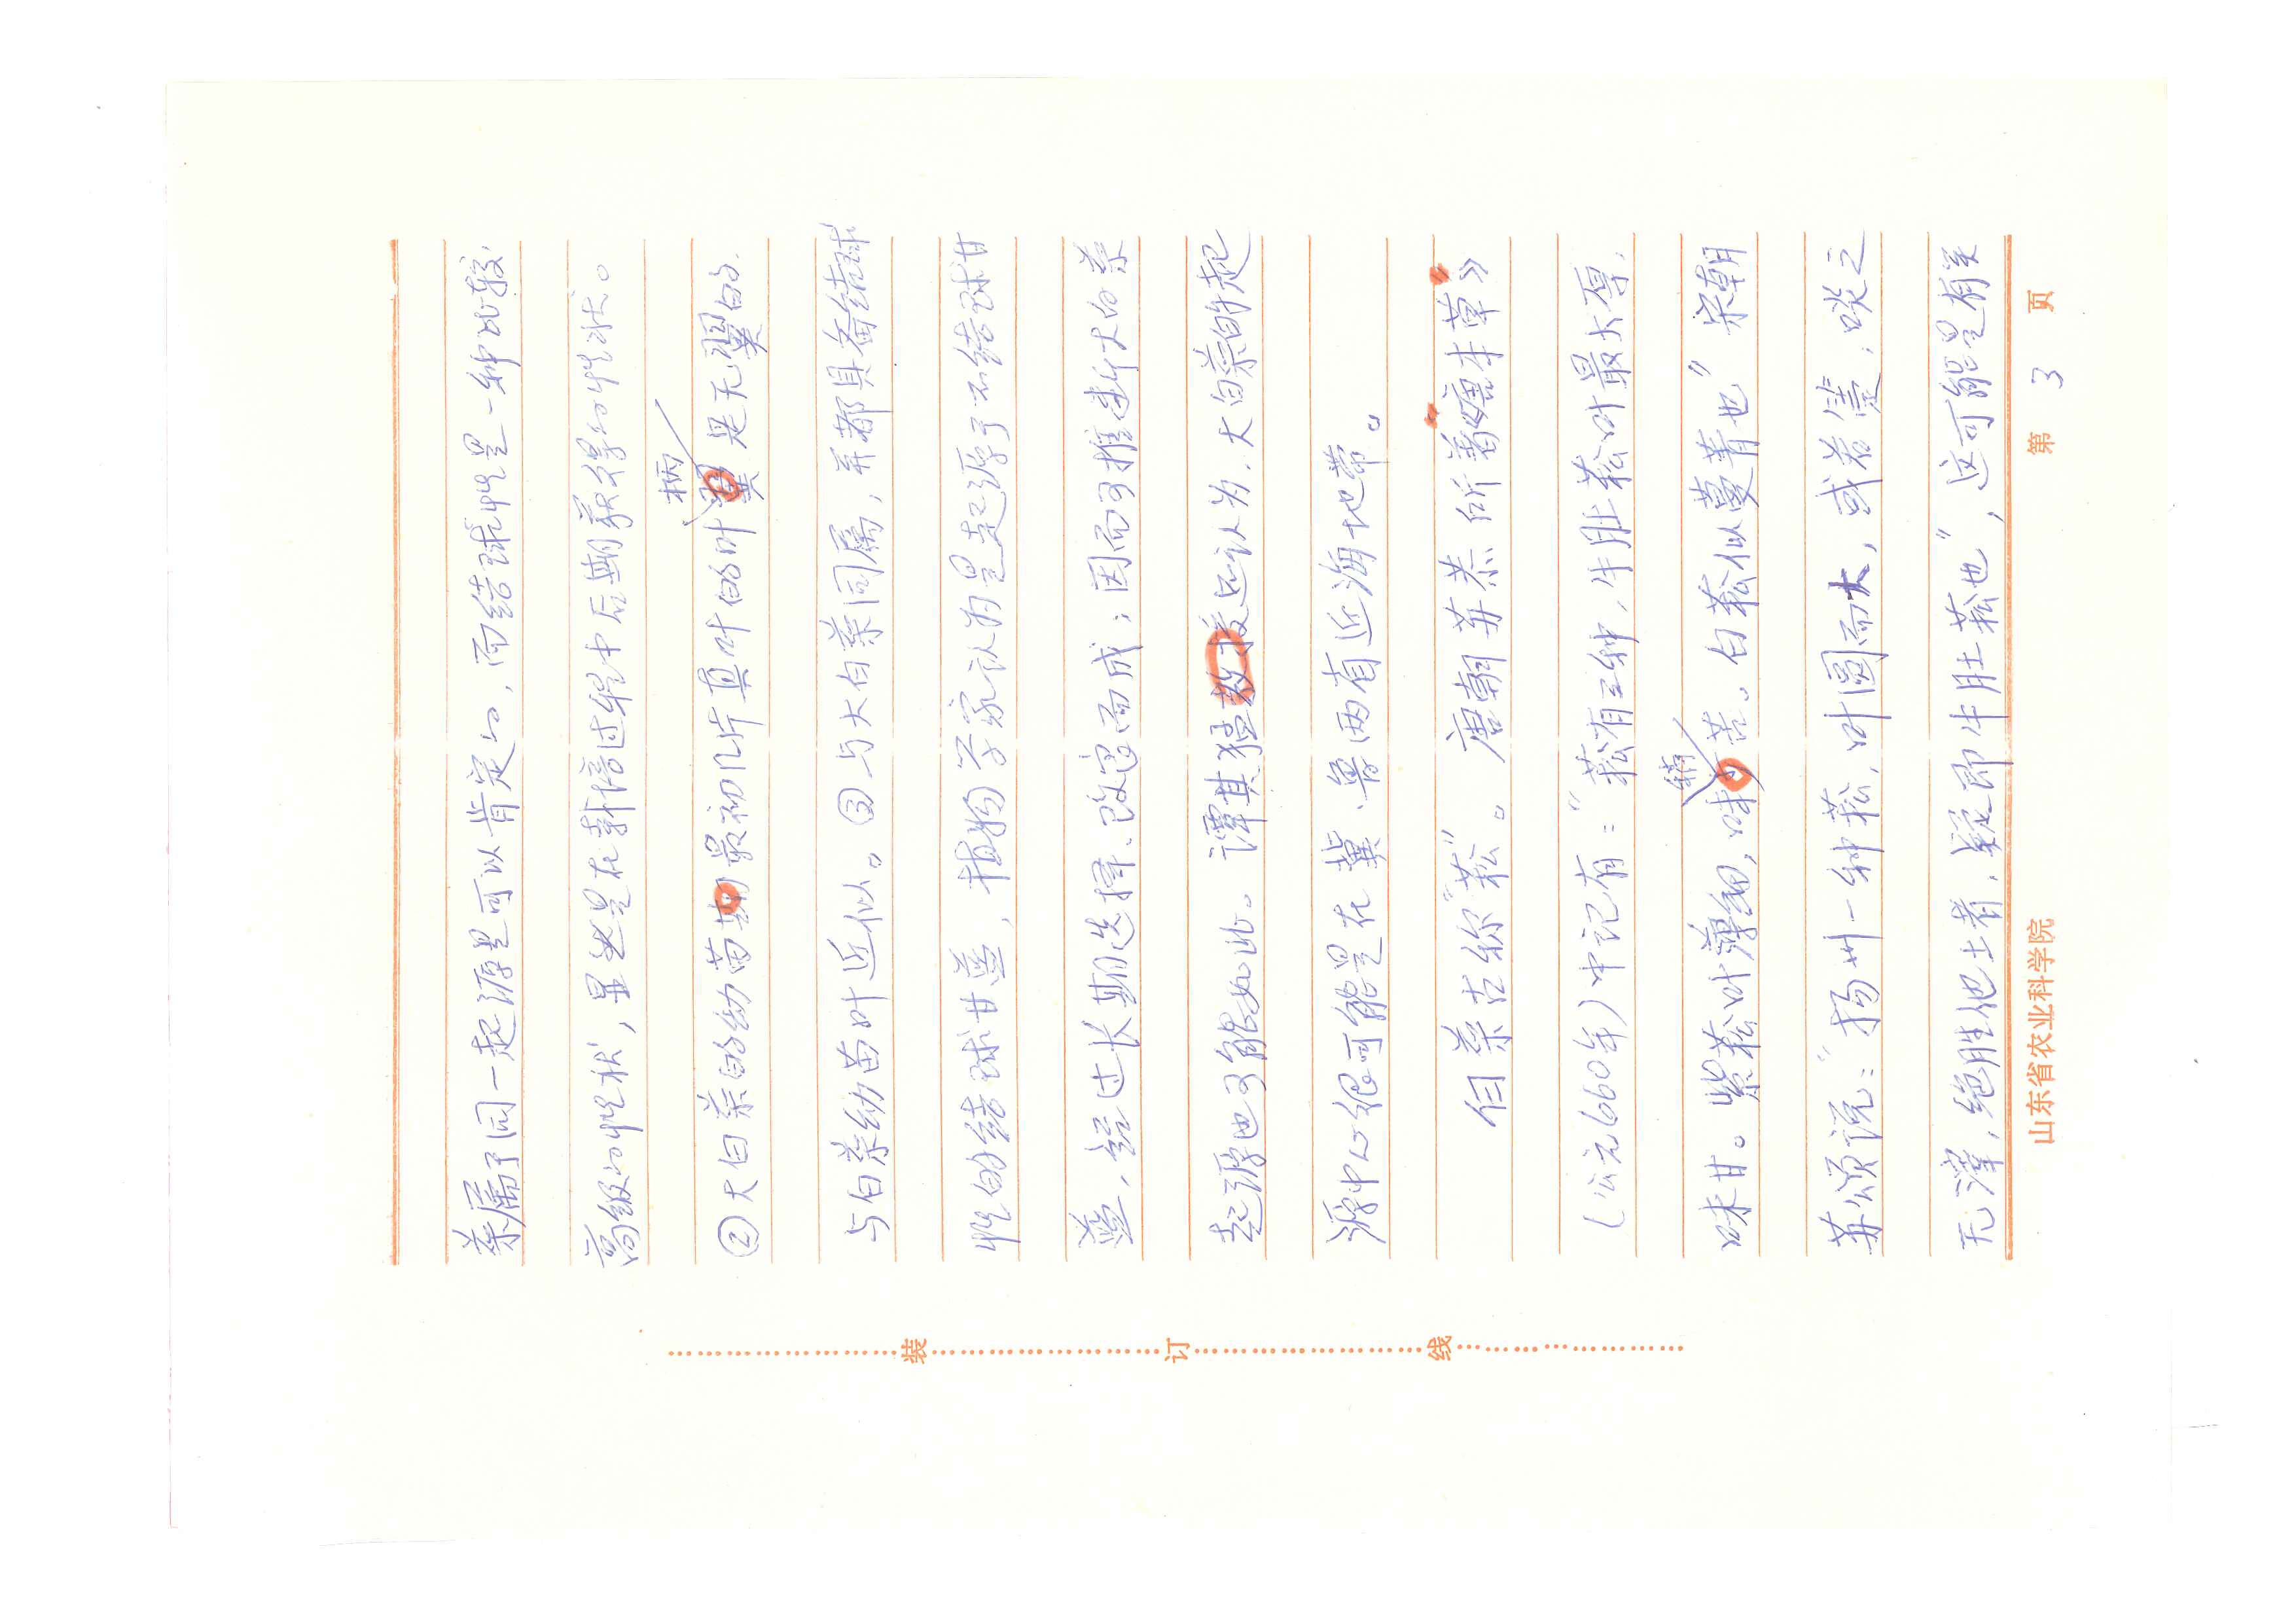 菜属于同一起源是可以肯定的，而结球性是一种比较
高级的性状，显然是在栽培过程中后期获得的性状。
柄
②大白菜的幼苗期最初几片真叶的叶翼是无翼的，
与白菜幼苗叶近似。③与大白菜同属，并都具备结球
性的结球甘蓝，植物学家认为是起源于不结球甘
蓝，经过长期选择、改良而成；因而可推断大白菜
起源也可能如此。谭其猛教授还认为，大白菜的起
源中心很可能是在冀、鲁两省近海地带。
白菜古称“菘”。唐朝苏恭所著“唐本草》
（公元660年）中记有：“菘有三种，牛肚菘叶最大厚，
稍
味甘。紫菘叶薄细，味 苦。白菘似蔓菁也”宋朝
苏颂说：“扬州一种菘，叶圆而大，或若箑，啖之
无滓，绝胜他土者，疑即牛肚菘也”，这可能是有关
山东省农业科学院 第 3 页
装 订 线